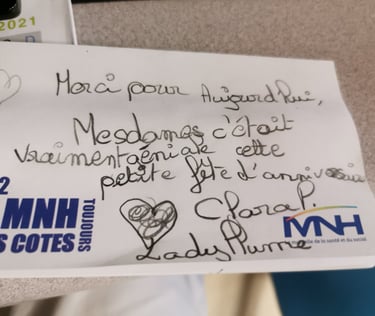 2021
Merci pour Aujourd'hui,
Mesdames c'était
vraiment géniale cette
petite fête d'anniversaire
Clara P.
Lady Plume
2
MNH
TOUJOURS
S COTES
MNH
elle de la santé et du social